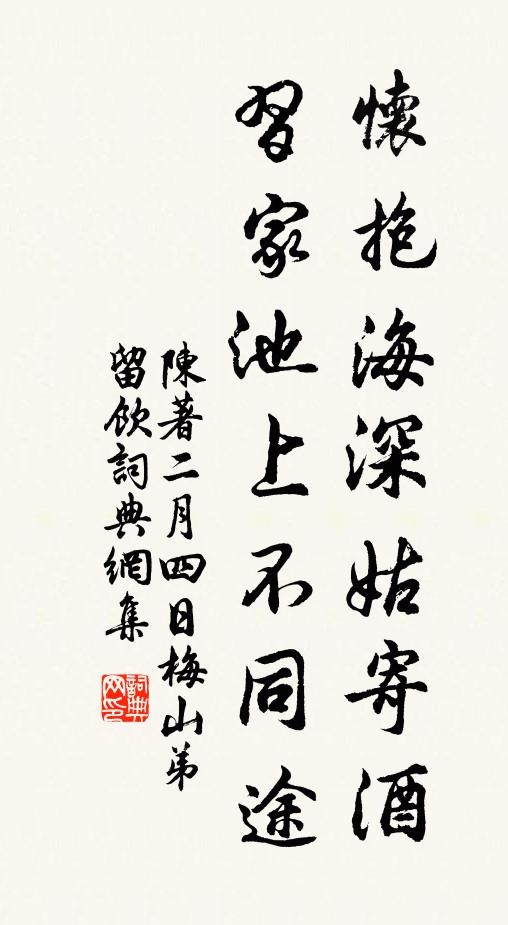 懷抱海深姑寄酒
習家池上不同途
陳著二月四日梅山弟
留飲詞典網集
詞典网印